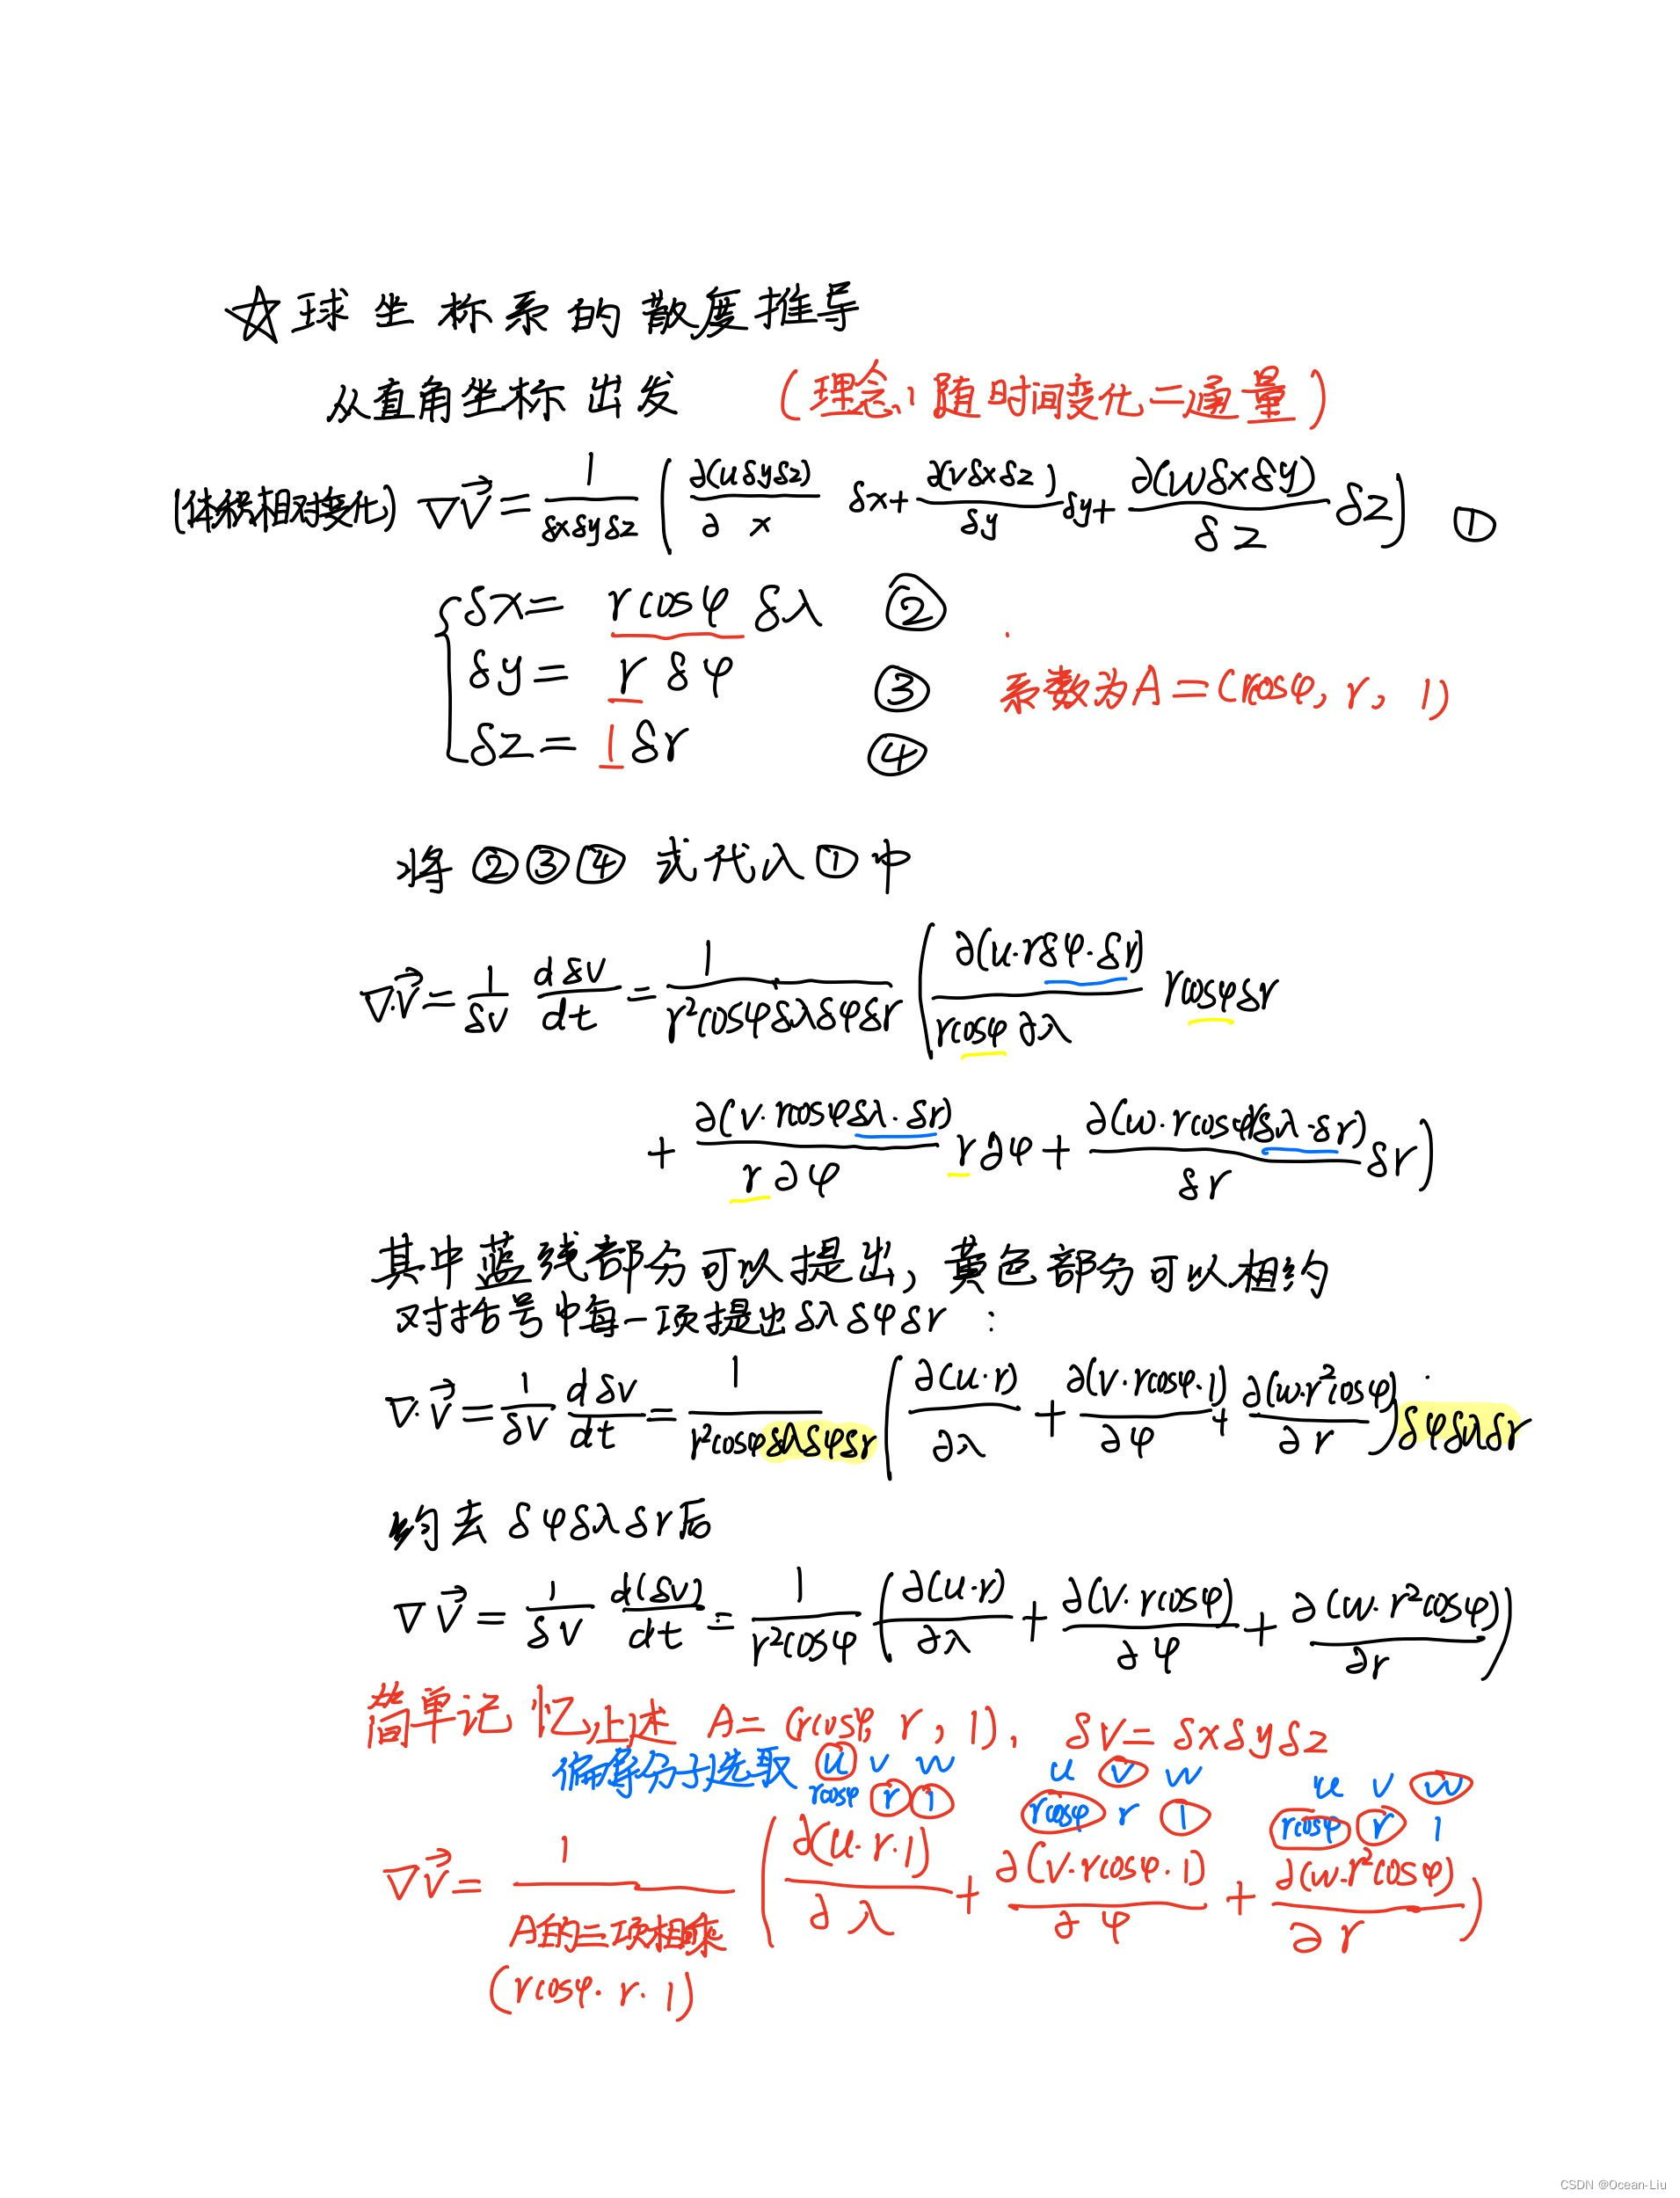 ☆球坐标系的散度推导
从直角坐标出发 (理念:随时间变化=通量)
(体积相对变化) ∇V⃗ = 1/(δxδyδz) ( ∂(uδyδz)/∂x δx + ∂(vδxδz)/δy δy + ∂(wδxδy)/δz δz ) ①
δx = rcosφ δλ ②
δy = r δφ ③
δz = 1 δr ④
系数为A = (rcosφ, r, 1)
将②③④式代入①中
∇·V⃗ = 1/δv dδv/dt = 1/(r²cosφδλδφδr) ( ∂(u·rδφ·δr)/(rcosφ∂λ) rcosφδr
+ ∂(v·rcosφδλ·δr)/(r∂φ) r∂φ + ∂(w·rcosφrδλ·δr)/δr δr )
其中蓝线部分可以提出,黄色部分可以相约
对括号中每一项提出δλδφδr:
∇·V⃗ = 1/δV dδV/dt = 1/(r²cosφδλδφδr) ( ∂(u·r)/∂λ + ∂(v·rcosφ·1)/∂φ + ∂(w·r²cosφ)/∂r ) δφδλδr
约去δφδλδr后
∇V⃗ = 1/δV d(δV)/dt = 1/(r²cosφ) ( ∂(u·r)/∂λ + ∂(V·rcosφ)/∂φ + ∂(w·r²cosφ)/∂r )
简单记忆上述 A = (rcosφ, r, 1), δV = δxδyδz
偏导分子选取 u v w u v w u v w
rcosφ r 1 rcosφ r 1 rcosφ r 1
∇V⃗ = 1/A的三项相乘 ( ∂(u·r·1)/∂λ + ∂(V·rcosφ·1)/∂φ + ∂(w·r²cosφ)/∂r )
(rcosφ·r·1)
CSDN @Ocean-Liu